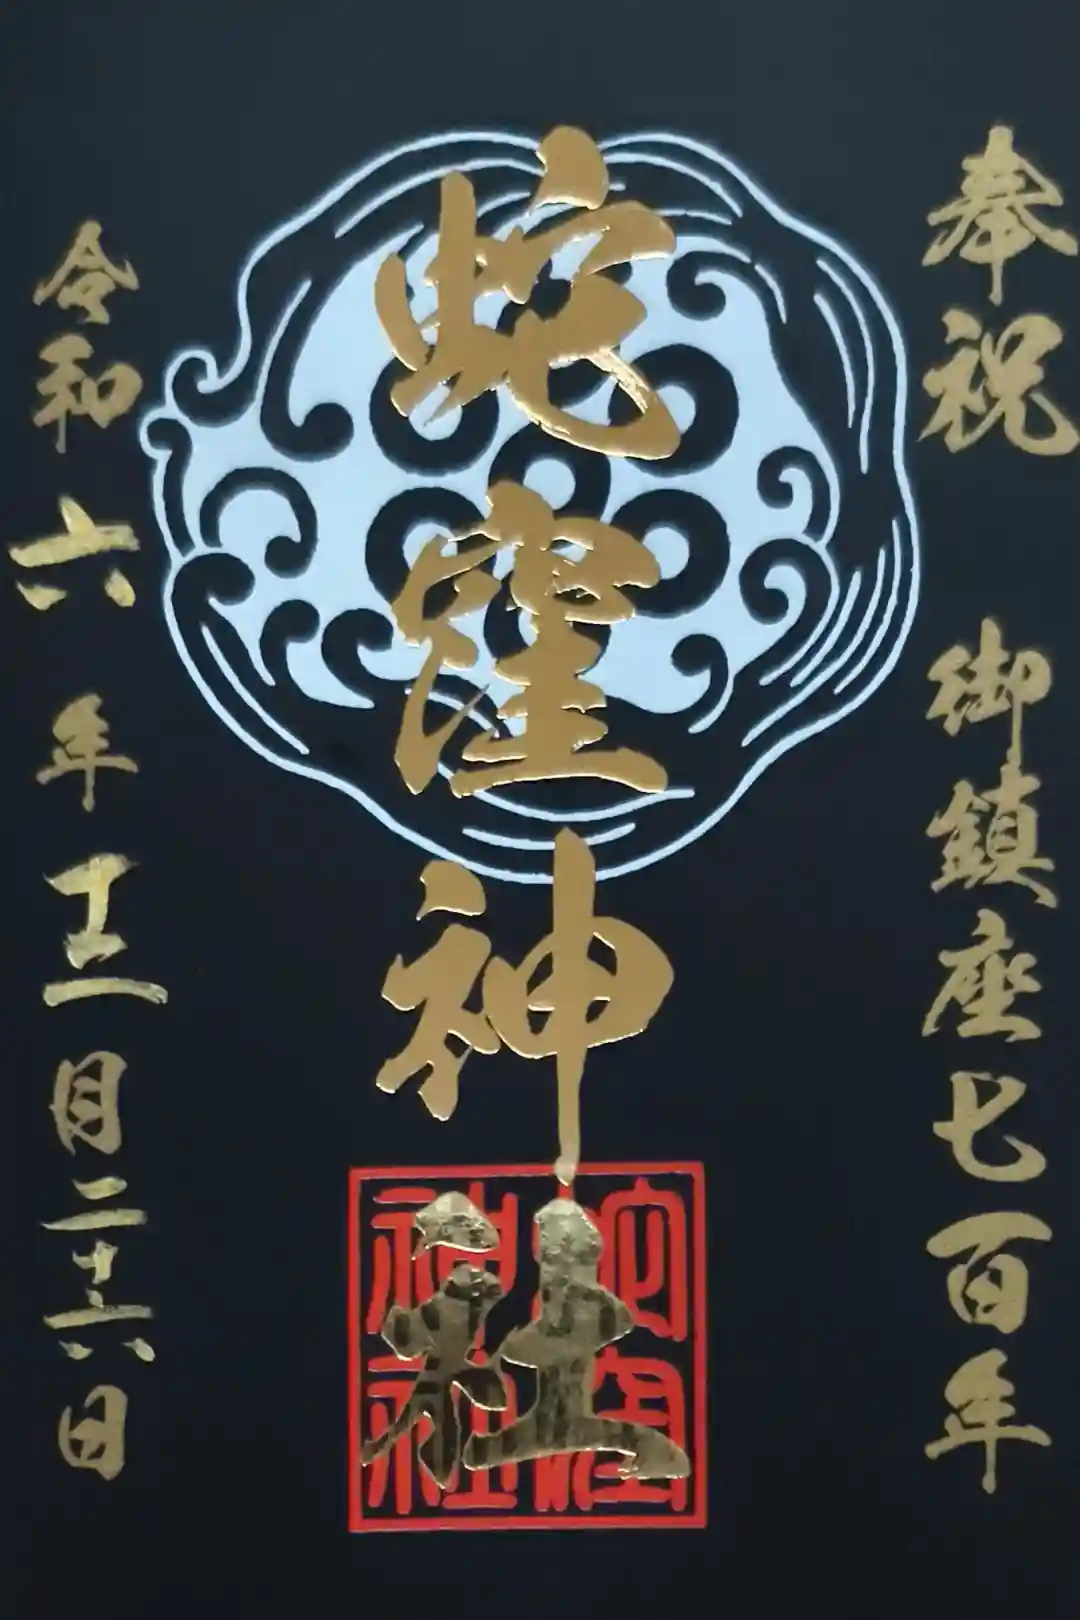 奉祝　御鎮座七百年
蛇窪神社
令和六年十二月二十六日
蛇窪
神社